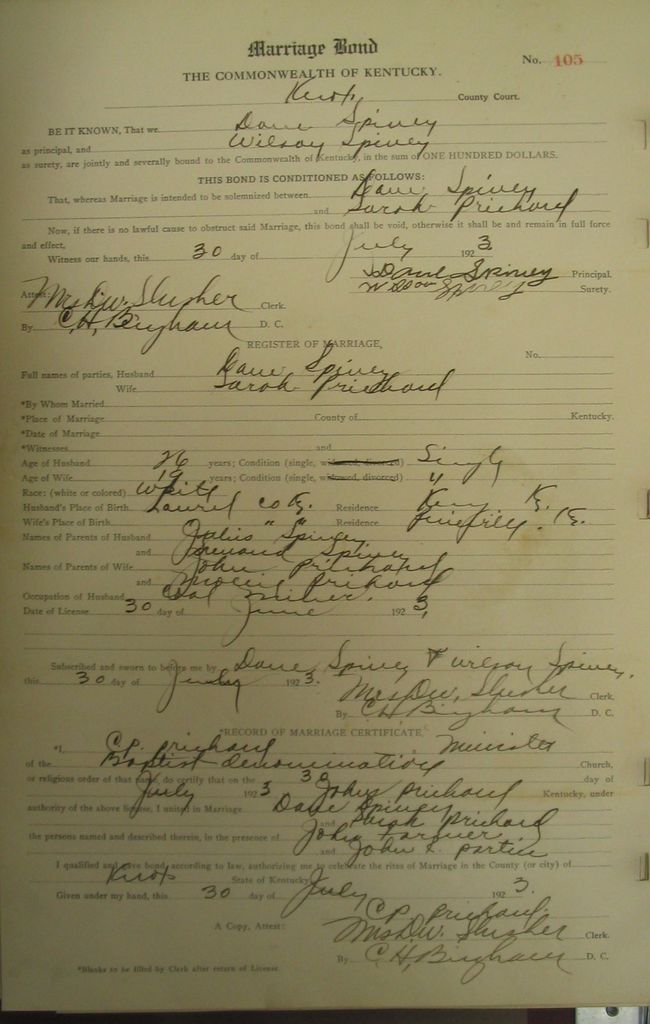 Marriage Bond
No. 105
THE COMMONWEALTH OF KENTUCKY.
Knox County Court.
BE IT KNOWN, That we Dave Spivey
as principal, and Wilson Spivey
as surety, are jointly and severally bound to the Commonwealth of Kentucky, in the sum of ONE HUNDRED DOLLARS.
THIS BOND IS CONDITIONED AS FOLLOWS:
That, whereas Marriage is intended to be solemnized between Dave Spivey
and Sarah Prichard
Now, if there is no lawful cause to obstruct said Marriage, this bond shall be void, otherwise it shall be and remain in full force
and effect,
Witness our hands, this 30 day of July 1923.
Dave Spivey Principal.
Wilson Spivey Surety.
Attest: Mrs. D.W. Slusher Clerk.
By C. H. Bingham D. C.
REGISTER OF MARRIAGE,
No.
Full names of parties, Husband Dave Spivey
Wife Sarah Prichard
*By Whom Married
*Place of Marriage County of Kentucky.
*Date of Marriage
*Witnesses and
Age of Husband 26 years; Condition (single, widowed, divorced) Single
Age of Wife 19 years; Condition (single, widowed, divorced) "
Race: (white or colored) White
Husband's Place of Birth Laurel Co Ky. Residence Ky.
Wife's Place of Birth " " Residence Ky.
Names of Parents of Husband Spivey
and Spivey
Names of Parents of Wife John Prichard
and Prichard
Occupation of Husband Coal Miner.
Date of License 30 day of June 1923,
Subscribed and sworn to before me by Dave Spivey & Wilson Spivey,
this 30 day of July 1923.
Mrs D.W. Slusher Clerk.
By C H Bingham D. C.
*RECORD OF MARRIAGE CERTIFICATE,
*I, C.P. Prichard Minister
of the Baptist denomination Church,
or religious order of that name, do certify that on the 30 day of
July 1923 John Prichard Kentucky, under
authority of the above license, I united in Marriage Dave Spivey
and Sarah Prichard
the persons named and described therein, in the presence of John
and John
I qualified and gave bond, according to law, authorizing me to celebrate the rites of Marriage in the County (or city) of
Knox State of Kentucky
Given under my hand, this 30 day of July 1923.
C.P. Prichard.
A Copy, Attest: Mrs D.W. Slusher Clerk.
By C. H. Bingham D. C.
*Blanks to be filled by Clerk after return of License